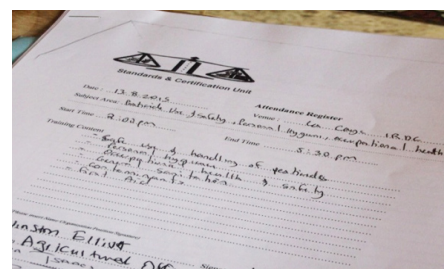 AJA
Standards & Certification Unit
Attendance Register
Date: 13.8.2015 Venue: Les Cayes, IRDC
Subject Area: Pesticide Use & Safety, Personal Hygiene, occupational health
Start Time 2:00pm End Time 5:30 pm
Training Content
- Safe use & handling of pesticides
- Personal hygiene
- Occupational health & safety
- General sanitation
- Contaminants
- First Aid
Elliott
Agricultural